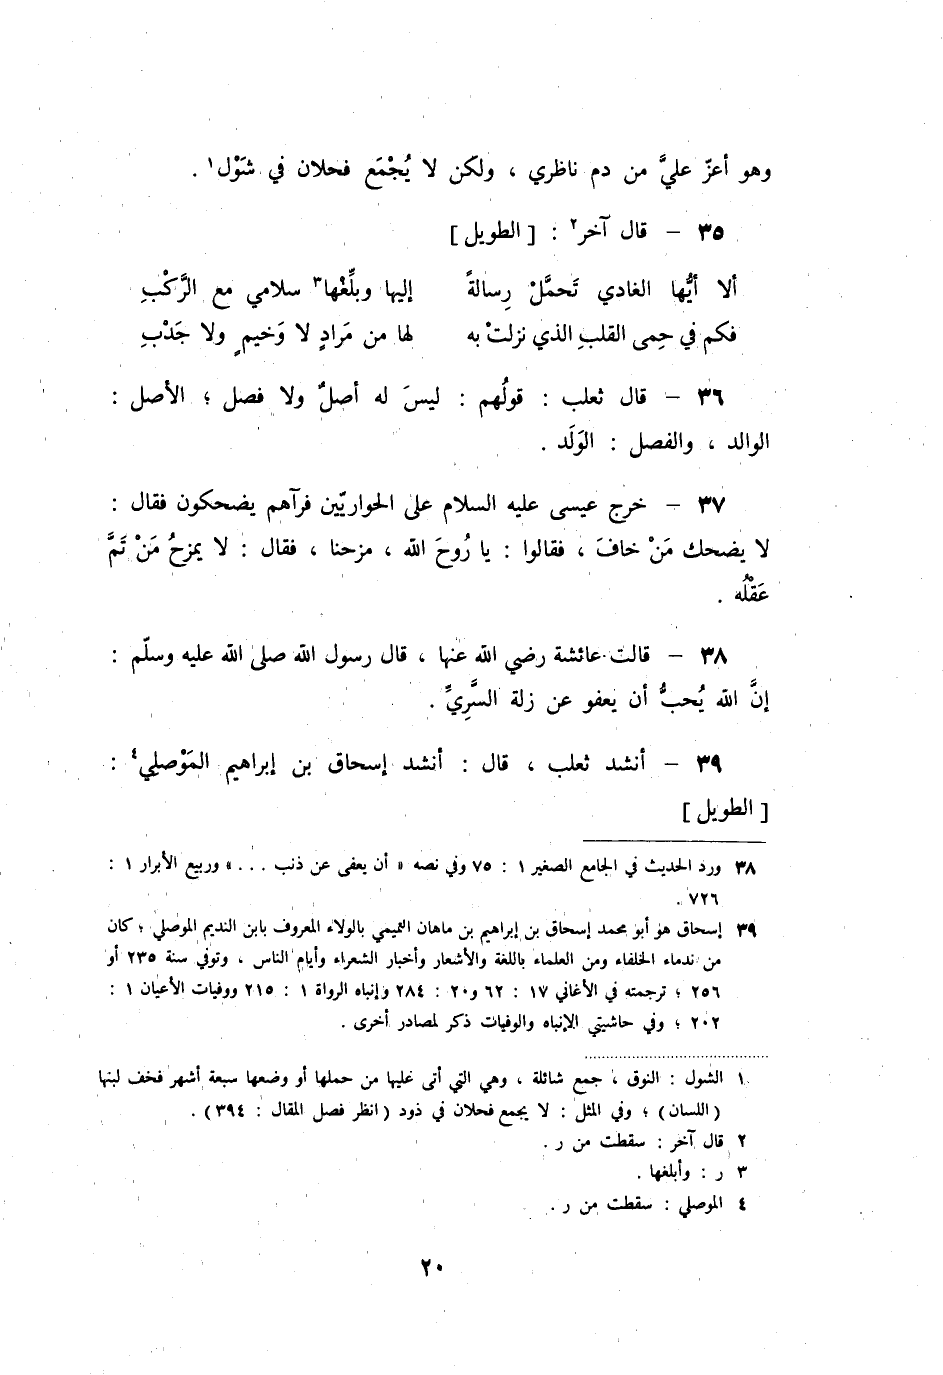 وهو أعزّ عليَّ من دم ناظري ، ولكن لا يُجْمَع فحلان في شَوْل١ .
٣٥ – قال آخر٢ : [ الطويل ]
ألا أيُّها الغادي تَحمَّلْ رِسالةً إليها وبلِّغْها٣ سلامي مع الرَّكْبِ
فكم في حِمى القلبِ الذي نزلتْ به لها من مَرادٍ لا وَخيمٍ ولا جَدْبِ
٣٦ – قال ثعلب : قولُهم : ليسَ له أصلٌ ولا فصل ؛ الأصل :
الوالد ، والفصل : الوَلَد .
٣٧ – خرج عيسى عليه السلام على الحواريّين فرآهم يضحكون فقال :
لا يضحك مَنْ خافَ ، فقالوا : يا رُوحَ الله ، مزحنا ، فقال : لا يمزحُ مَنْ تَمَّ
عَقْلُه .
٣٨ – قالت عائشة رضي الله عنها ، قال رسول الله صلى الله عليه وسلّم :
إنَّ الله يُحبُّ أن يعفو عن زلة السَّرِيِّ .
٣٩ – أنشد ثعلب ، قال : أنشد إسحاق بن إبراهيم المَوْصلي٤ :
[ الطويل ]
٣٨ ورد الحديث في الجامع الصغير ١ : ٧٥ وفي نصه « أن يعفى عن ذنب . . . » وربيع الأبرار ١ :
٧٢٦ .
٣٩ إسحاق هو أبو محمد إسحاق بن إبراهيم بن ماهان التميمي بالولاء المعروف بابن النديم الموصلي ؛ كان
من ندماء الخلفاء ومن العلماء باللغة والأشعار وأخبار الشعراء وأيام الناس ، وتوفي سنة ٢٣٥ أو
٢٥٦ ؛ ترجمته في الأغاني ١٧ : ٦٢ و٢٠ : ٢٨٤ وإنباه الرواة ١ : ٢١٥ ووفيات الأعيان ١ :
٢٠٢ ؛ وفي حاشيتي الإنباه والوفيات ذكر لمصادر أخرى .
١ الشول : النوق ، جمع شائلة ، وهي التي أتى عليها من حملها أو وضعها سبعة أشهر فخف لبنها
(اللسان) ؛ وفي المثل : لا يجمع فحلان في ذود (انظر فصل المقال : ٣٩٤) .
٢ قال آخر : سقطت من ر .
٣ ر : وأبلغها .
٤ الموصلي : سقطت من ر .
٢٠